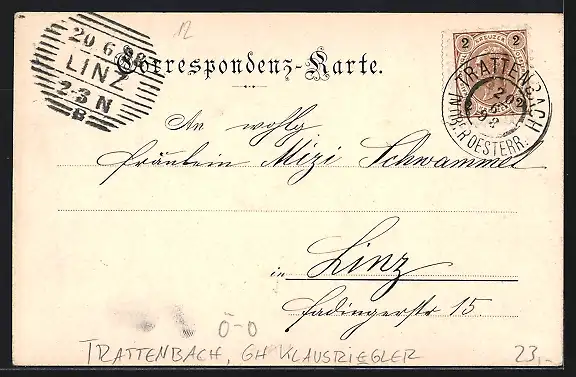 12
20 6 98
LINZ
2-3 N
B
Correspondenz-Karte.
2 KREUZER 2
TRATTENBACH
IN OB. ÖESTERR.
An wohlg
Fräulein Mizi Schwammel
in Linz
Fadingerstr 15.
Ö-O
TRATTENBACH, GH KLAUSRIEGLER
23,-